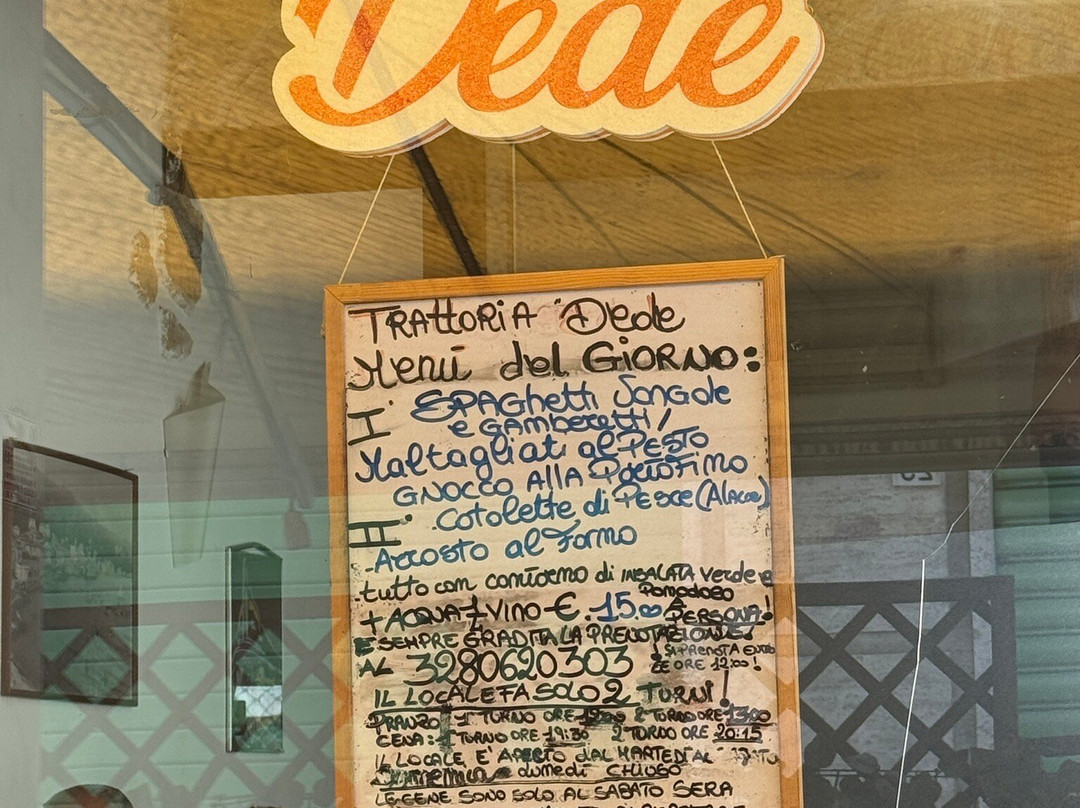 Dede
TRAttORiA "Dede
Menú del GiORNO:
I. SPAGhetti Vongole
e GAMbeRetti/
Maltagliati al PESTO
GNOCCO ALLA PORtOFiNO
II. Cotolette di Pesce (Alacce)
Arrosto al Forno
tutto con contorno di INSALATA verde e
POMODORO
+ ACQUA + Vino € 15.00 A
PERSONA!
E SEMPRE GRADITA LA PRENOTAZIONE!
AL 3280620303 !SI PRENOTA ENTRO
LE ORE 12:00!
IL LOCALE FA SOLO 2 TURNI!
PRANZO 1° TURNO ORE 12:00 2° TURNO ORE 13:00
CENA: 1° TURNO ORE 19:30 2° TURNO ORE 20:15
IL LOCALE E' APERTO DAL MARTEDI AL
Domenica e lunedi CHIUSO
LE CENE SONO SOLO AL SABATO SERA